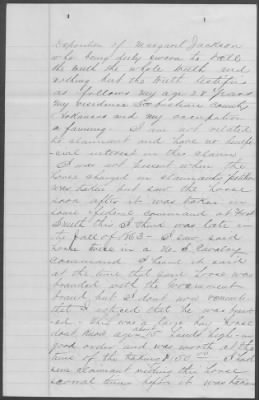 Deposition of Margaret Jackson
who being duly sworn to tell
the truth the whole truth and
nothing but the truth testifies
as follows my age 28 years
my residence Sebastian County
Arkansas and my occupation
a farming - I am not related
to claimant and have no benefi-
cial interest in this claim,
I was not present when the
horse charged in claimants petition
was taken but saw the horse
soon after it was taken in
some federal command at Fort
Smith this I think was late in
the fall of 1863 - I saw said
horse twice in a Cavalry
command I think it said
at the time that same horse was
branded with the Government
brand but I dont now remem-
ber that I noticed that he was brand-
ed - This was a large bay horse
about 15 hands high in
good order and was worth at the
time of the taking $150.00 I had
seen claimant riding this horse
several times before it was taken